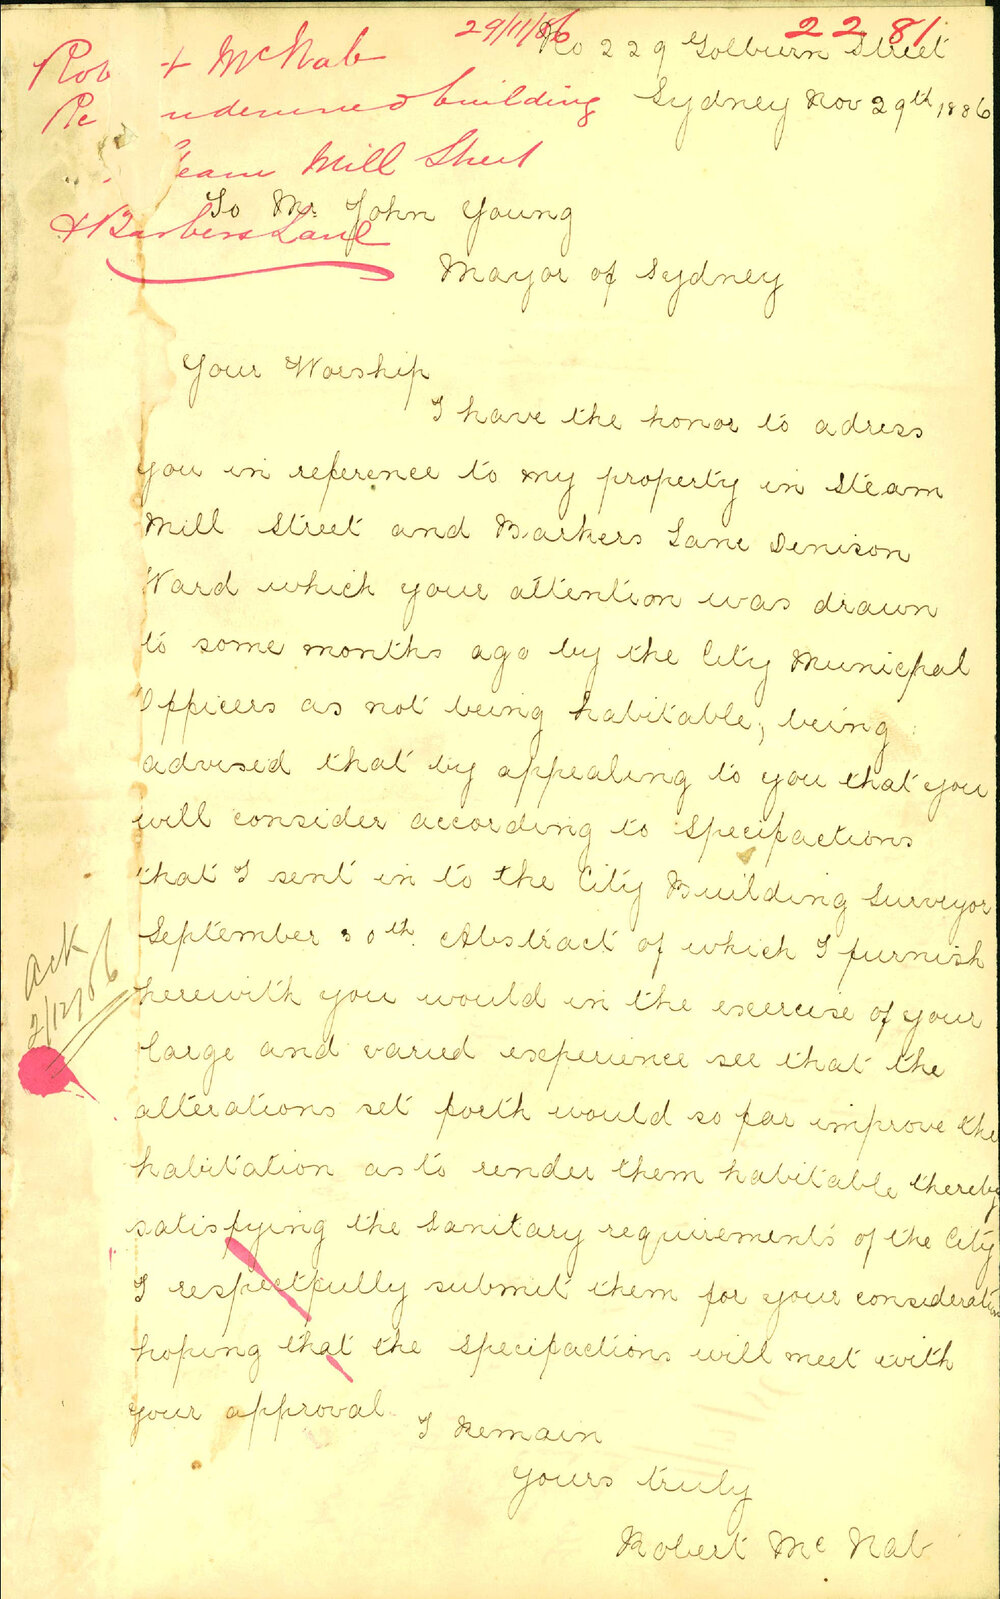 29/11/86
2281
Robt McNab
Re undermined building
Steam Mill Street
& Barbers Lane
No 229 Golburn Street
Sydney Nov 29th 1886
To Mr. John Young
Mayor of Sydney
Your Worship
I have the honor to adress
you in reference to my property in Steam
Mill Street and Barkers Lane Denison
Ward which your attention was drawn
to some months ago by the City Municpal
Officers as not being habitable, being
advised that by appealing to you that you
will consider according to Specifactions
that I sent in to the City Building Surveyor
September 30th. Abstract of which I furnish
herewith you would in the exercise of your
large and varied experience see that the
alterations set forth would so far improve the
habitation as to render them habitable thereby
satisfying the Sanitary requirements of the City
I respectfully submit them for your consideration
hoping that the specifactions will meet with
your approval
I Remain
Yours truly
Robert Mc Nab
Ack
2/12/86